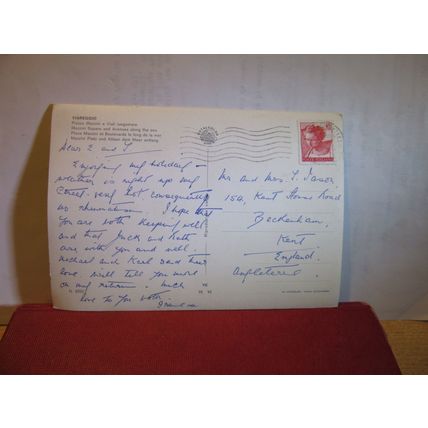 VIAREGGIO
Piazza Mazzini e Viali lungomare
Mazzini Square and Avenues along the sea
Place Mazzini et Boulevards le long de la mer
Mazzini Platz und Alleen dem Meer entlang
Dear E and S
Enjoying my holiday -
weather on right up my
street. very hot consequently
no rheumatism. I hope that
you are both keeping well
and that Jack and Ruth
are with you and well.
Michael and Karl send their
love. will tell you more
on my return. Much
love to you both.
Mr and Mrs. S.
154, Kent House Road
Beckenham,
Kent.
England.
Angleterre